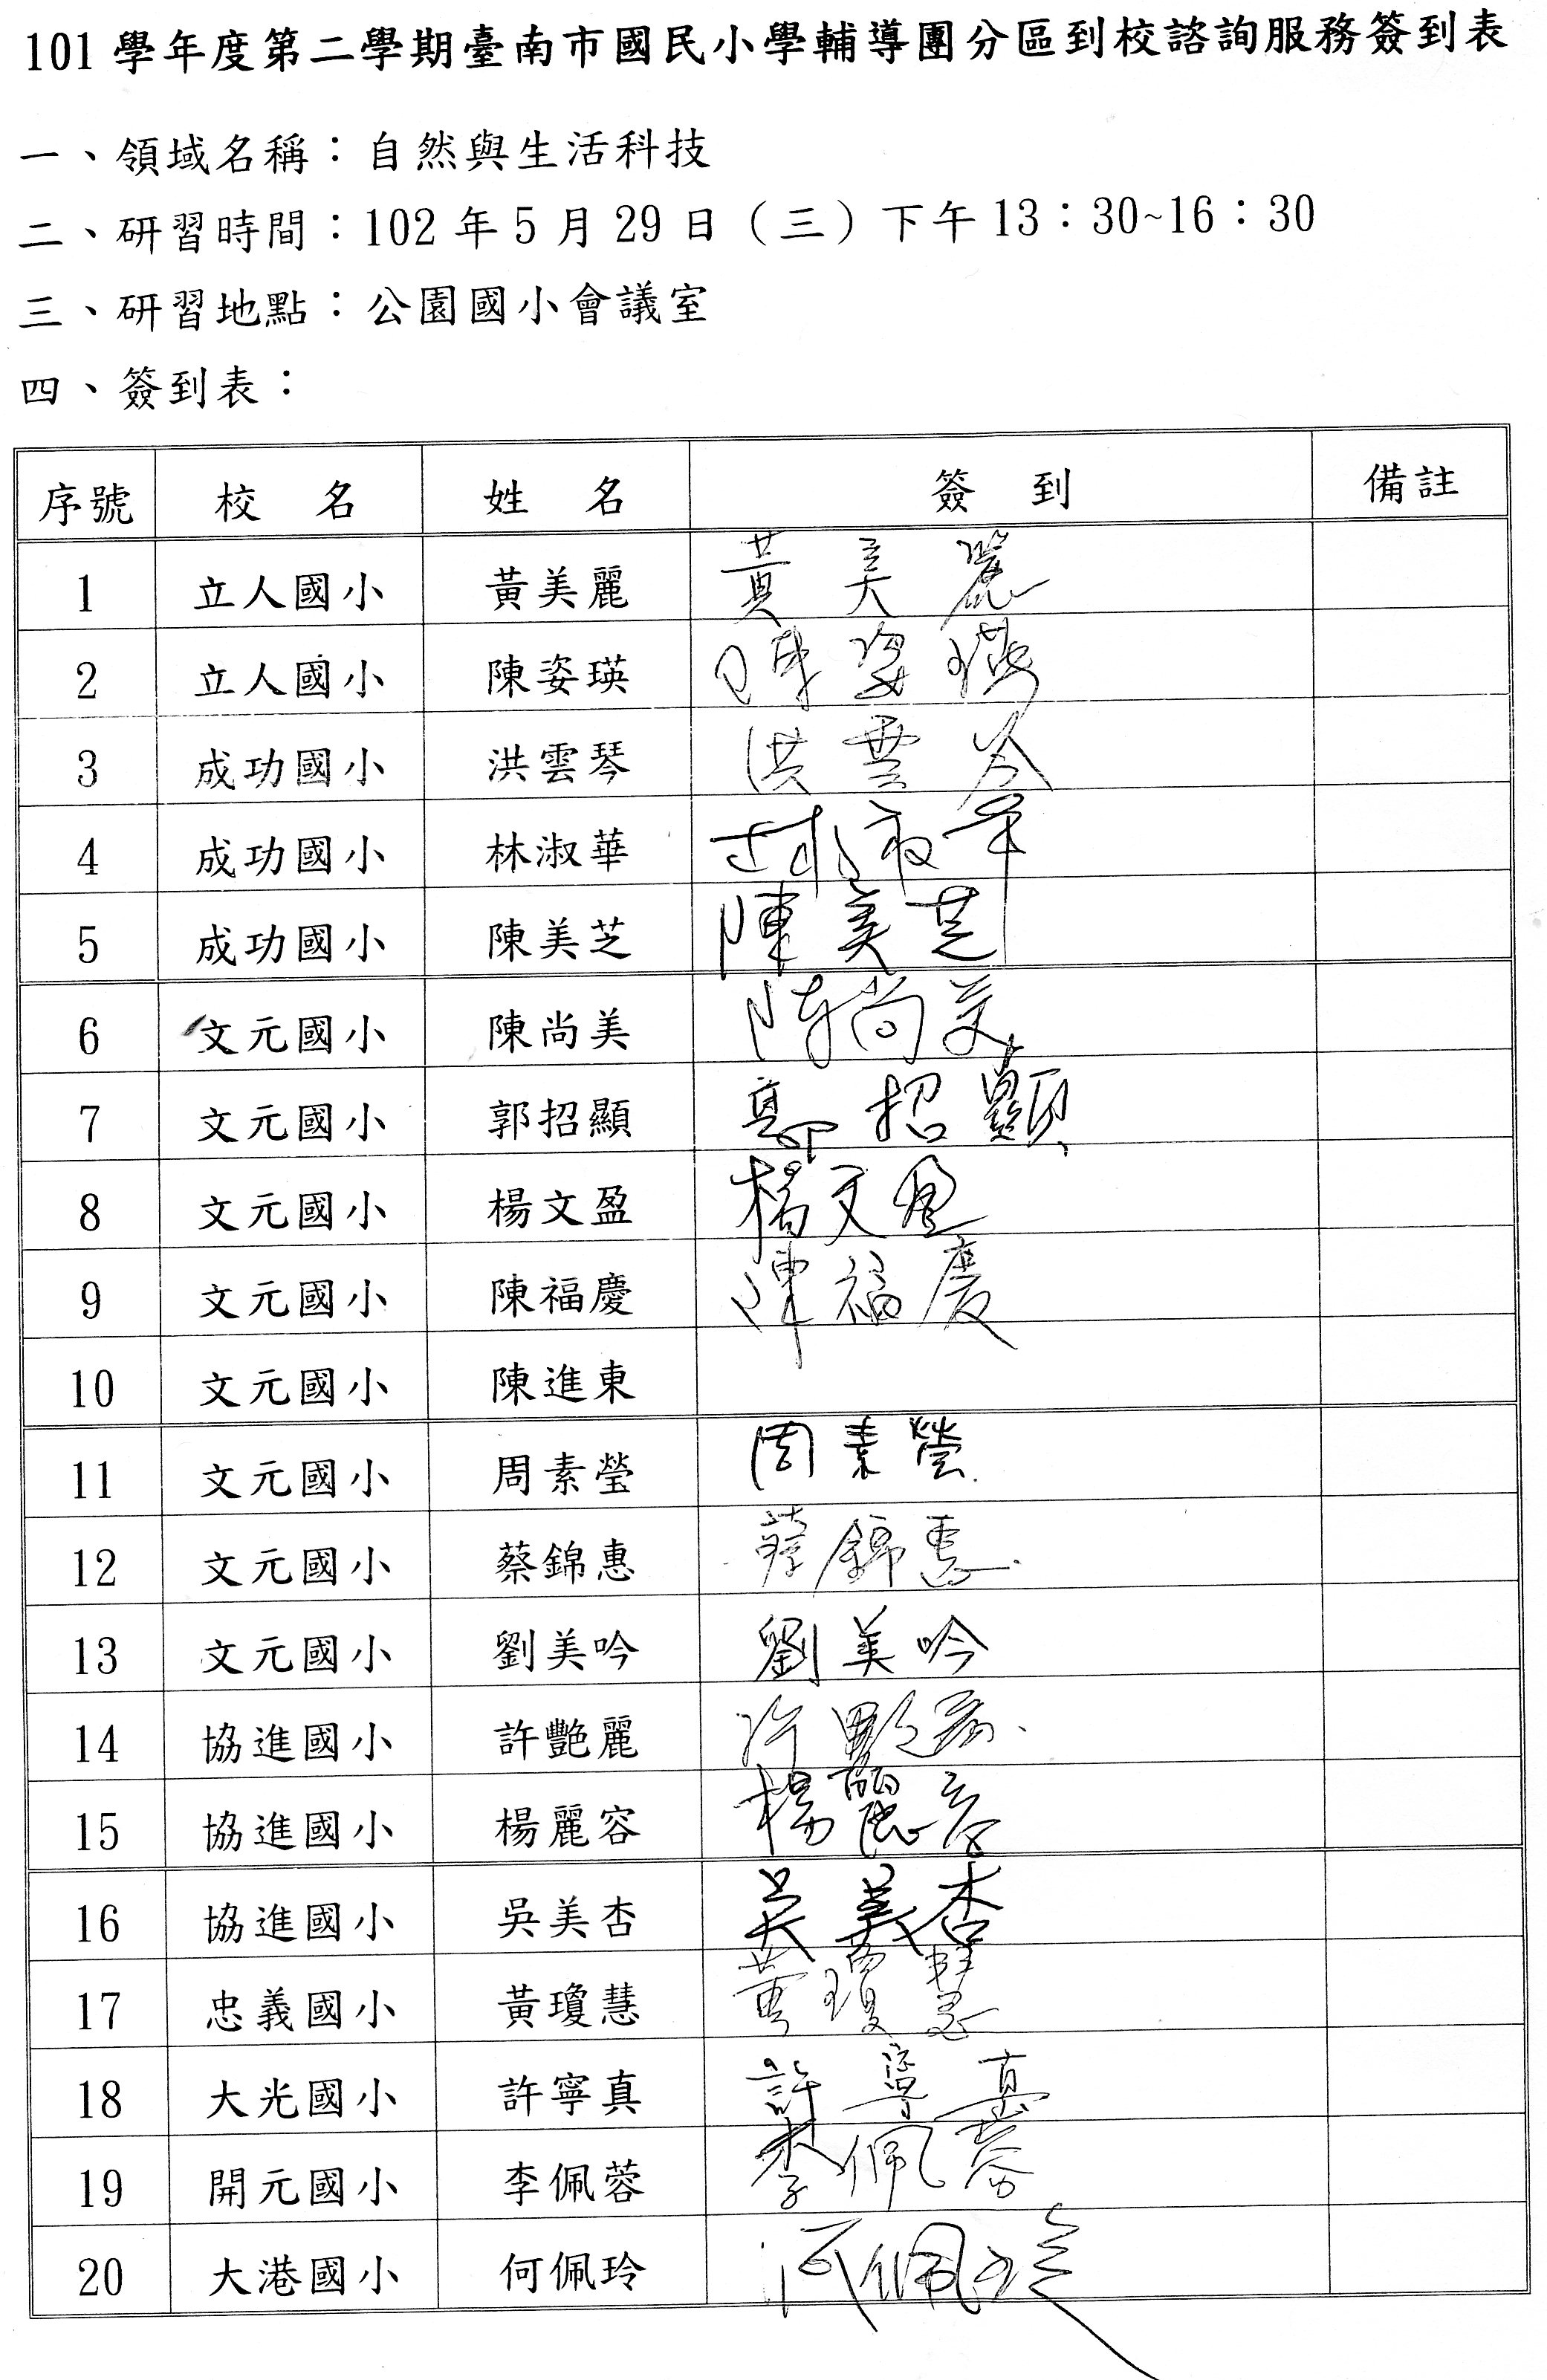 101 學年度第二學期臺南市國民小學輔導團分區到校諮詢服務簽到表
一、領域名稱：自然與生活科技
二、研習時間：102 年 5 月 29 日（三）下午 13：30~16：30
三、研習地點：公園國小會議室
四、簽到表：
序號 校 名 姓 名 簽 到 備註
1 立人國小 黃美麗 黃美麗
2 立人國小 陳姿瑛 陳姿瑛
3 成功國小 洪雲琴 洪雲琴
4 成功國小 林淑華 林淑華
5 成功國小 陳美芝 陳美芝
6 文元國小 陳尚美 陳尚美
7 文元國小 郭招顯 郭招顯
8 文元國小 楊文盈 楊文盈
9 文元國小 陳福慶 陳福慶
10 文元國小 陳進東
11 文元國小 周素瑩 周素瑩
12 文元國小 蔡錦惠 蔡錦惠
13 文元國小 劉美吟 劉美吟
14 協進國小 許艷麗 許艷麗
15 協進國小 楊麗容 楊麗容
16 協進國小 吳美杏 吳美杏
17 忠義國小 黃瓊慧 黃瓊慧
18 大光國小 許寧真 許寧真
19 開元國小 李佩蓉 李佩蓉
20 大港國小 何佩玲 何佩玲